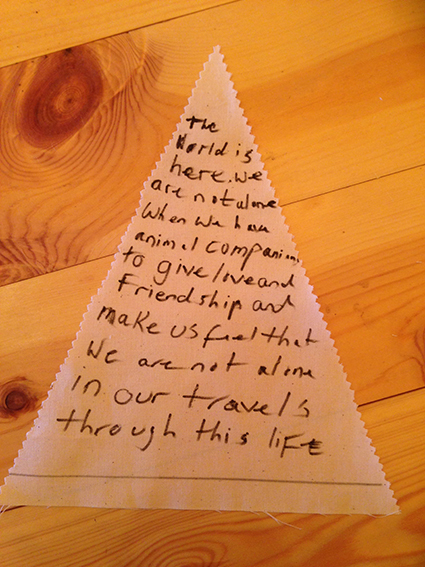 the
World is
here. We
are not alone
When We have
animal companions
to give love and
Friendship and
make us feel that
We are not alone
in our travels
through this life